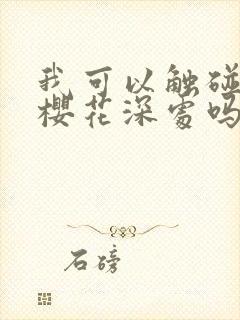 我可以触碰
樱花深处吗
石磅